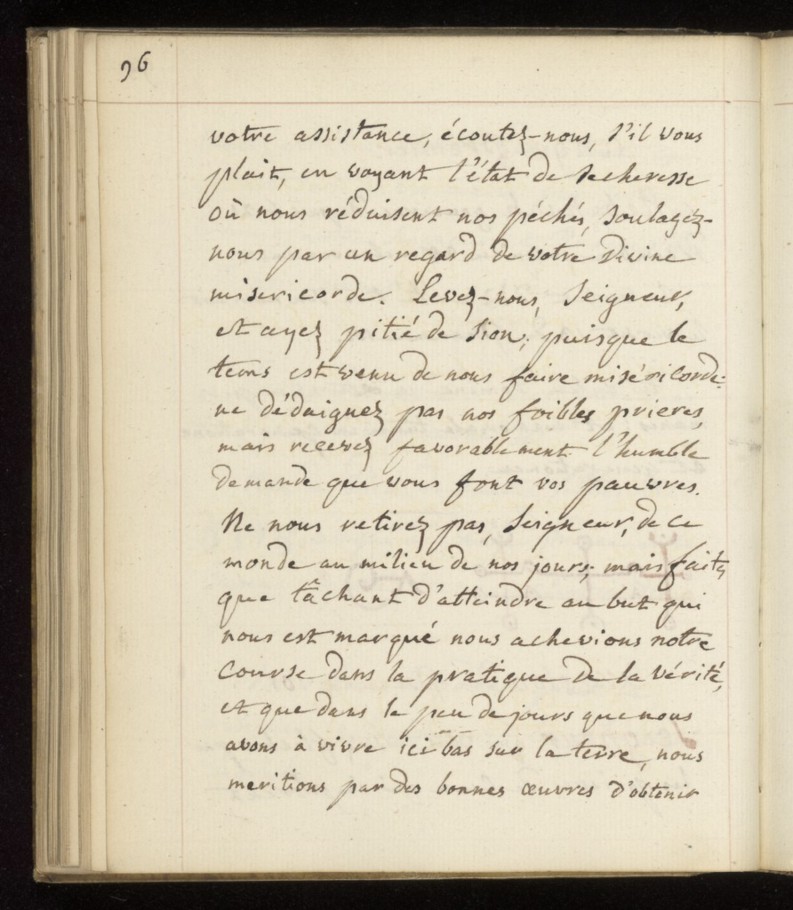 96
votre assistance, écoutez-nous, s'il vous
plait, en voyant l'état de secheresse
où nous réduisent nos péchés, soulagez-
nous par un regard de votre divine
misericorde. Levez-nous, Seigneur,
et ayez pitié de Sion; puisque le
tems est venu de nous faire miséricorde:
ne dédaignez pas nos foibles prieres,
mais recevez favorablement l'humble
demande que vous font vos pauvres.
Ne nous retirez pas, Seigneur, de ce
monde au milieu de nos jours; mais faites
que tâchant d'atteindre au but qui
nous est marqué nous achevions notre
course dans la pratique de la vérité,
et que dans le peu de jours que nous
avons à vivre ici-bas sur la terre, nous
meritions par des bonnes œuvres d'obtenir